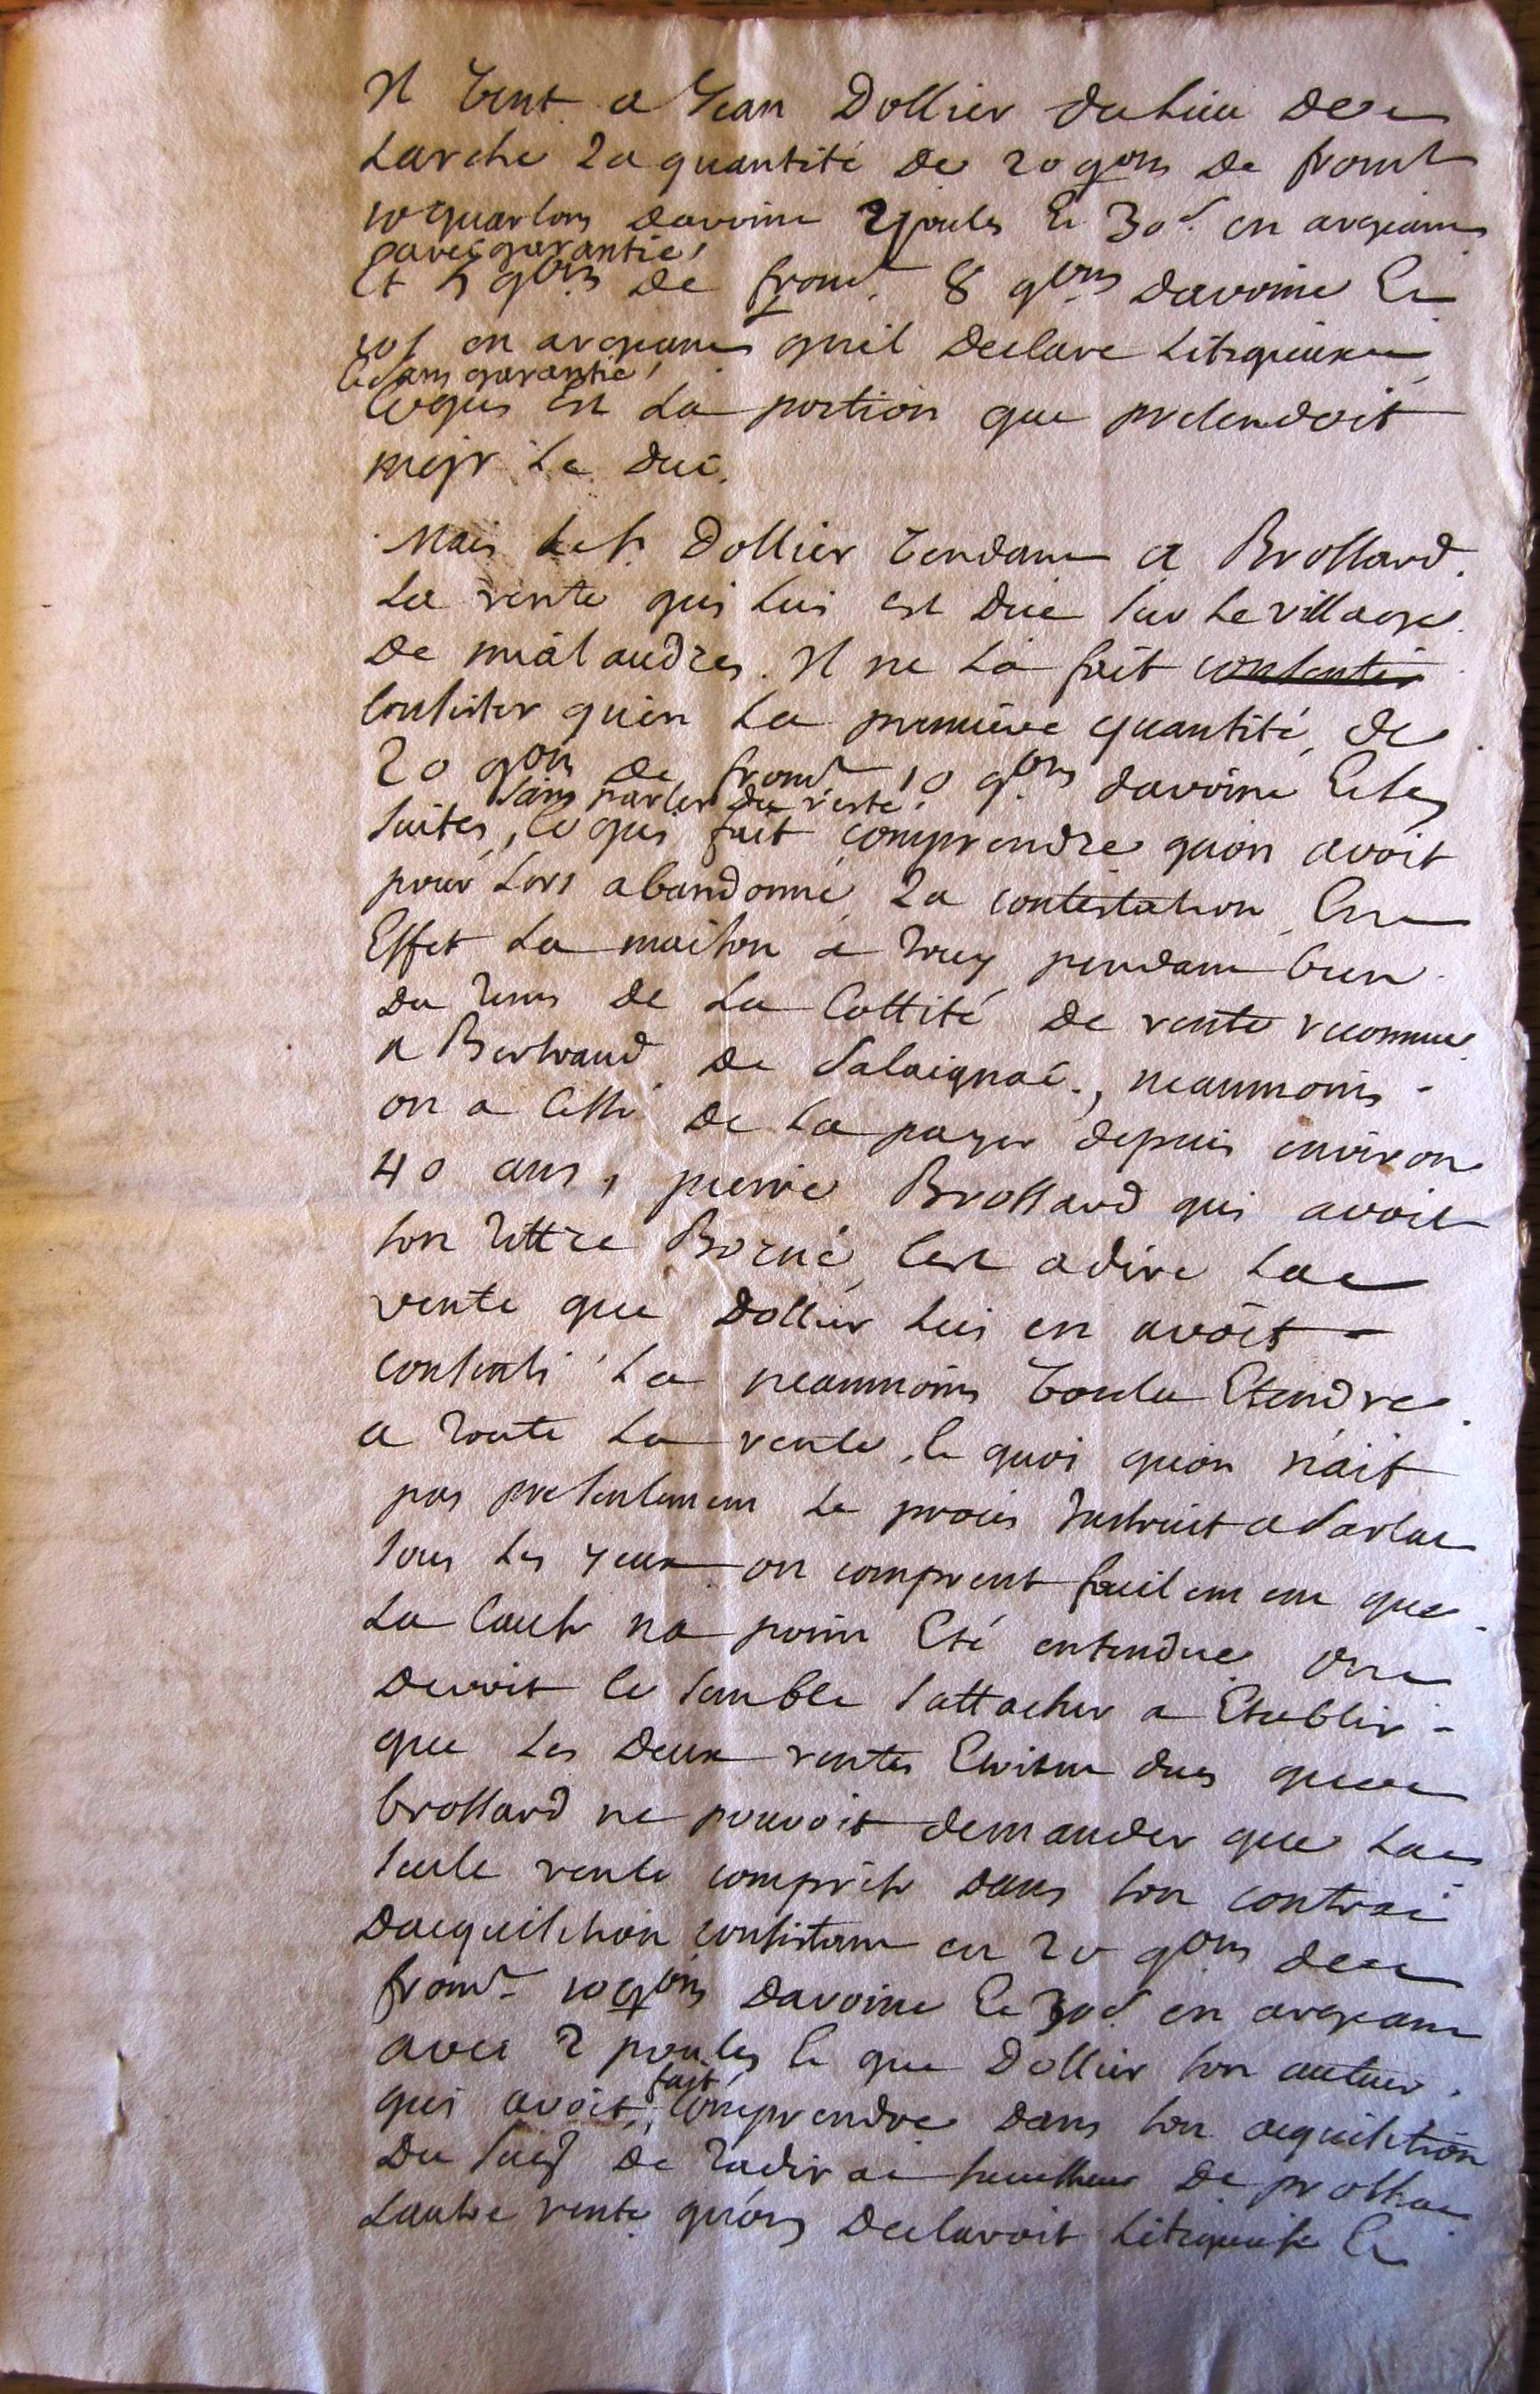 Il vent a Jean Dollier du lieu de
Larche la quantité de 20 qons de fromt
10 quartons davoine 2 poules et 30s en argeant
avec garantie
Et 5 qons de fromt 8 qons davoine Et
10s en argeant quil declare Litigieuse
Et sans garantie
ce qui est La portion que pretendoit
mgr Le duc.
Mais Le sr Dollier vendant a Brossard
La rente qui Lui est due sur Le village
de malaudres. Il ne La fait consentir
consister quen La premiere quantité de
20 qons de fromt 10 qons davoine Et les
sans parler du reste
suites, ce qui fait comprendre quon avoit
pour Lors abandonné La contestation En
Effet La maison a jouy pendant bien
du tems de La Cottité de rente reconnue
a Bertrand de Salaignac, neanmoins
on a cessé de La payer depuis environ
40 ans, pierre Brossard qui avoit
son tittre Borné, cest adire La
vente que Dollier Lui en avoit
consenti La neanmoins voulu Etendre
a toute La rente, Et quoi quon n'ait
pas presentement Le procès Instruit a Sarlat
sous Les yeux on comprent facilement que
La Cause na point Eté entendue on
devoit ce semble sattacher a Etablir
que Les deux rentes Etoient dues que
brossard ne pouvoit demander que La
seule rente comprise dans son contrat
dacquisition consistant en 20 qons de
fromt 10 qons davoine Et 30s en argeant
avec 2 poules Et que Dollier son auteur
qui avoit fait comprendre dans son acquisition
du sief de
Lautre rente quon declaroit Litigieuse Et